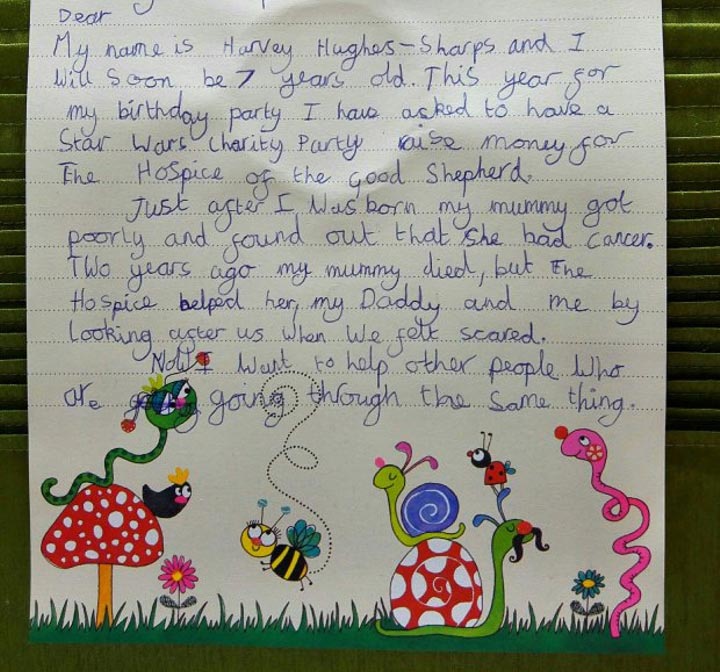 Dear
My name is Harvey Hughes-Sharps and I
Will Soon be 7 years old. This year for
my birthday party I have asked to have a
Star Wars Charity Party raise money for
The Hospice of the Good Shepherd.
Just after I Was born my mummy got
poorly and found out that She had Cancer.
Two years ago my mummy died, but The
Hospice helped her, my Daddy and me by
Looking after us When We felt scared.
Now I Want to help other people Who
are going through the Same thing.